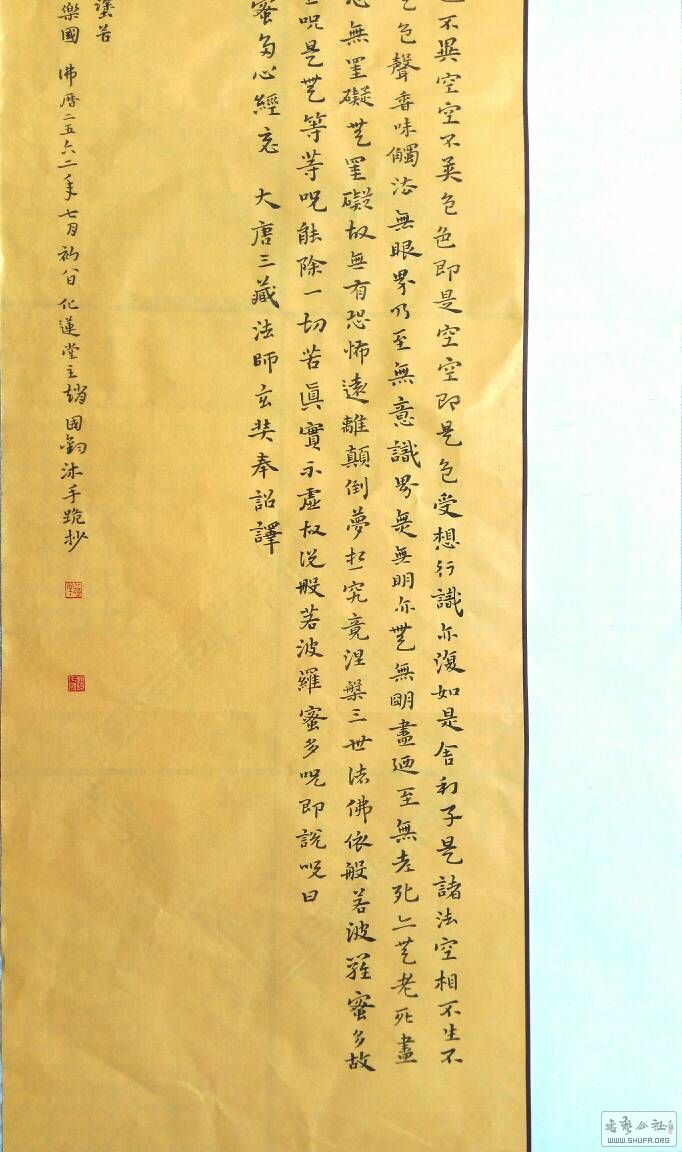 不異空空不異色色即是空空即是色受想行識亦復如是舍利子是諸法空相不生不
色聲香味觸法無眼界乃至無意識界無無明亦無無明盡廼至無老死亦無老死盡
無罣礙無罣礙故無有恐怖遠離顛倒夢想究竟涅槃三世諸佛依般若波羅蜜多故
呪是無等等呪能除一切苦真實不虛故說般若波羅蜜多呪即說呪曰
蜜多心經 大唐三藏法師玄奘奉詔譯
樂國 佛曆二五六二年七月初八日化蓮堂主趙國鈞沐手跪抄
WWW.SHUFA.ORG